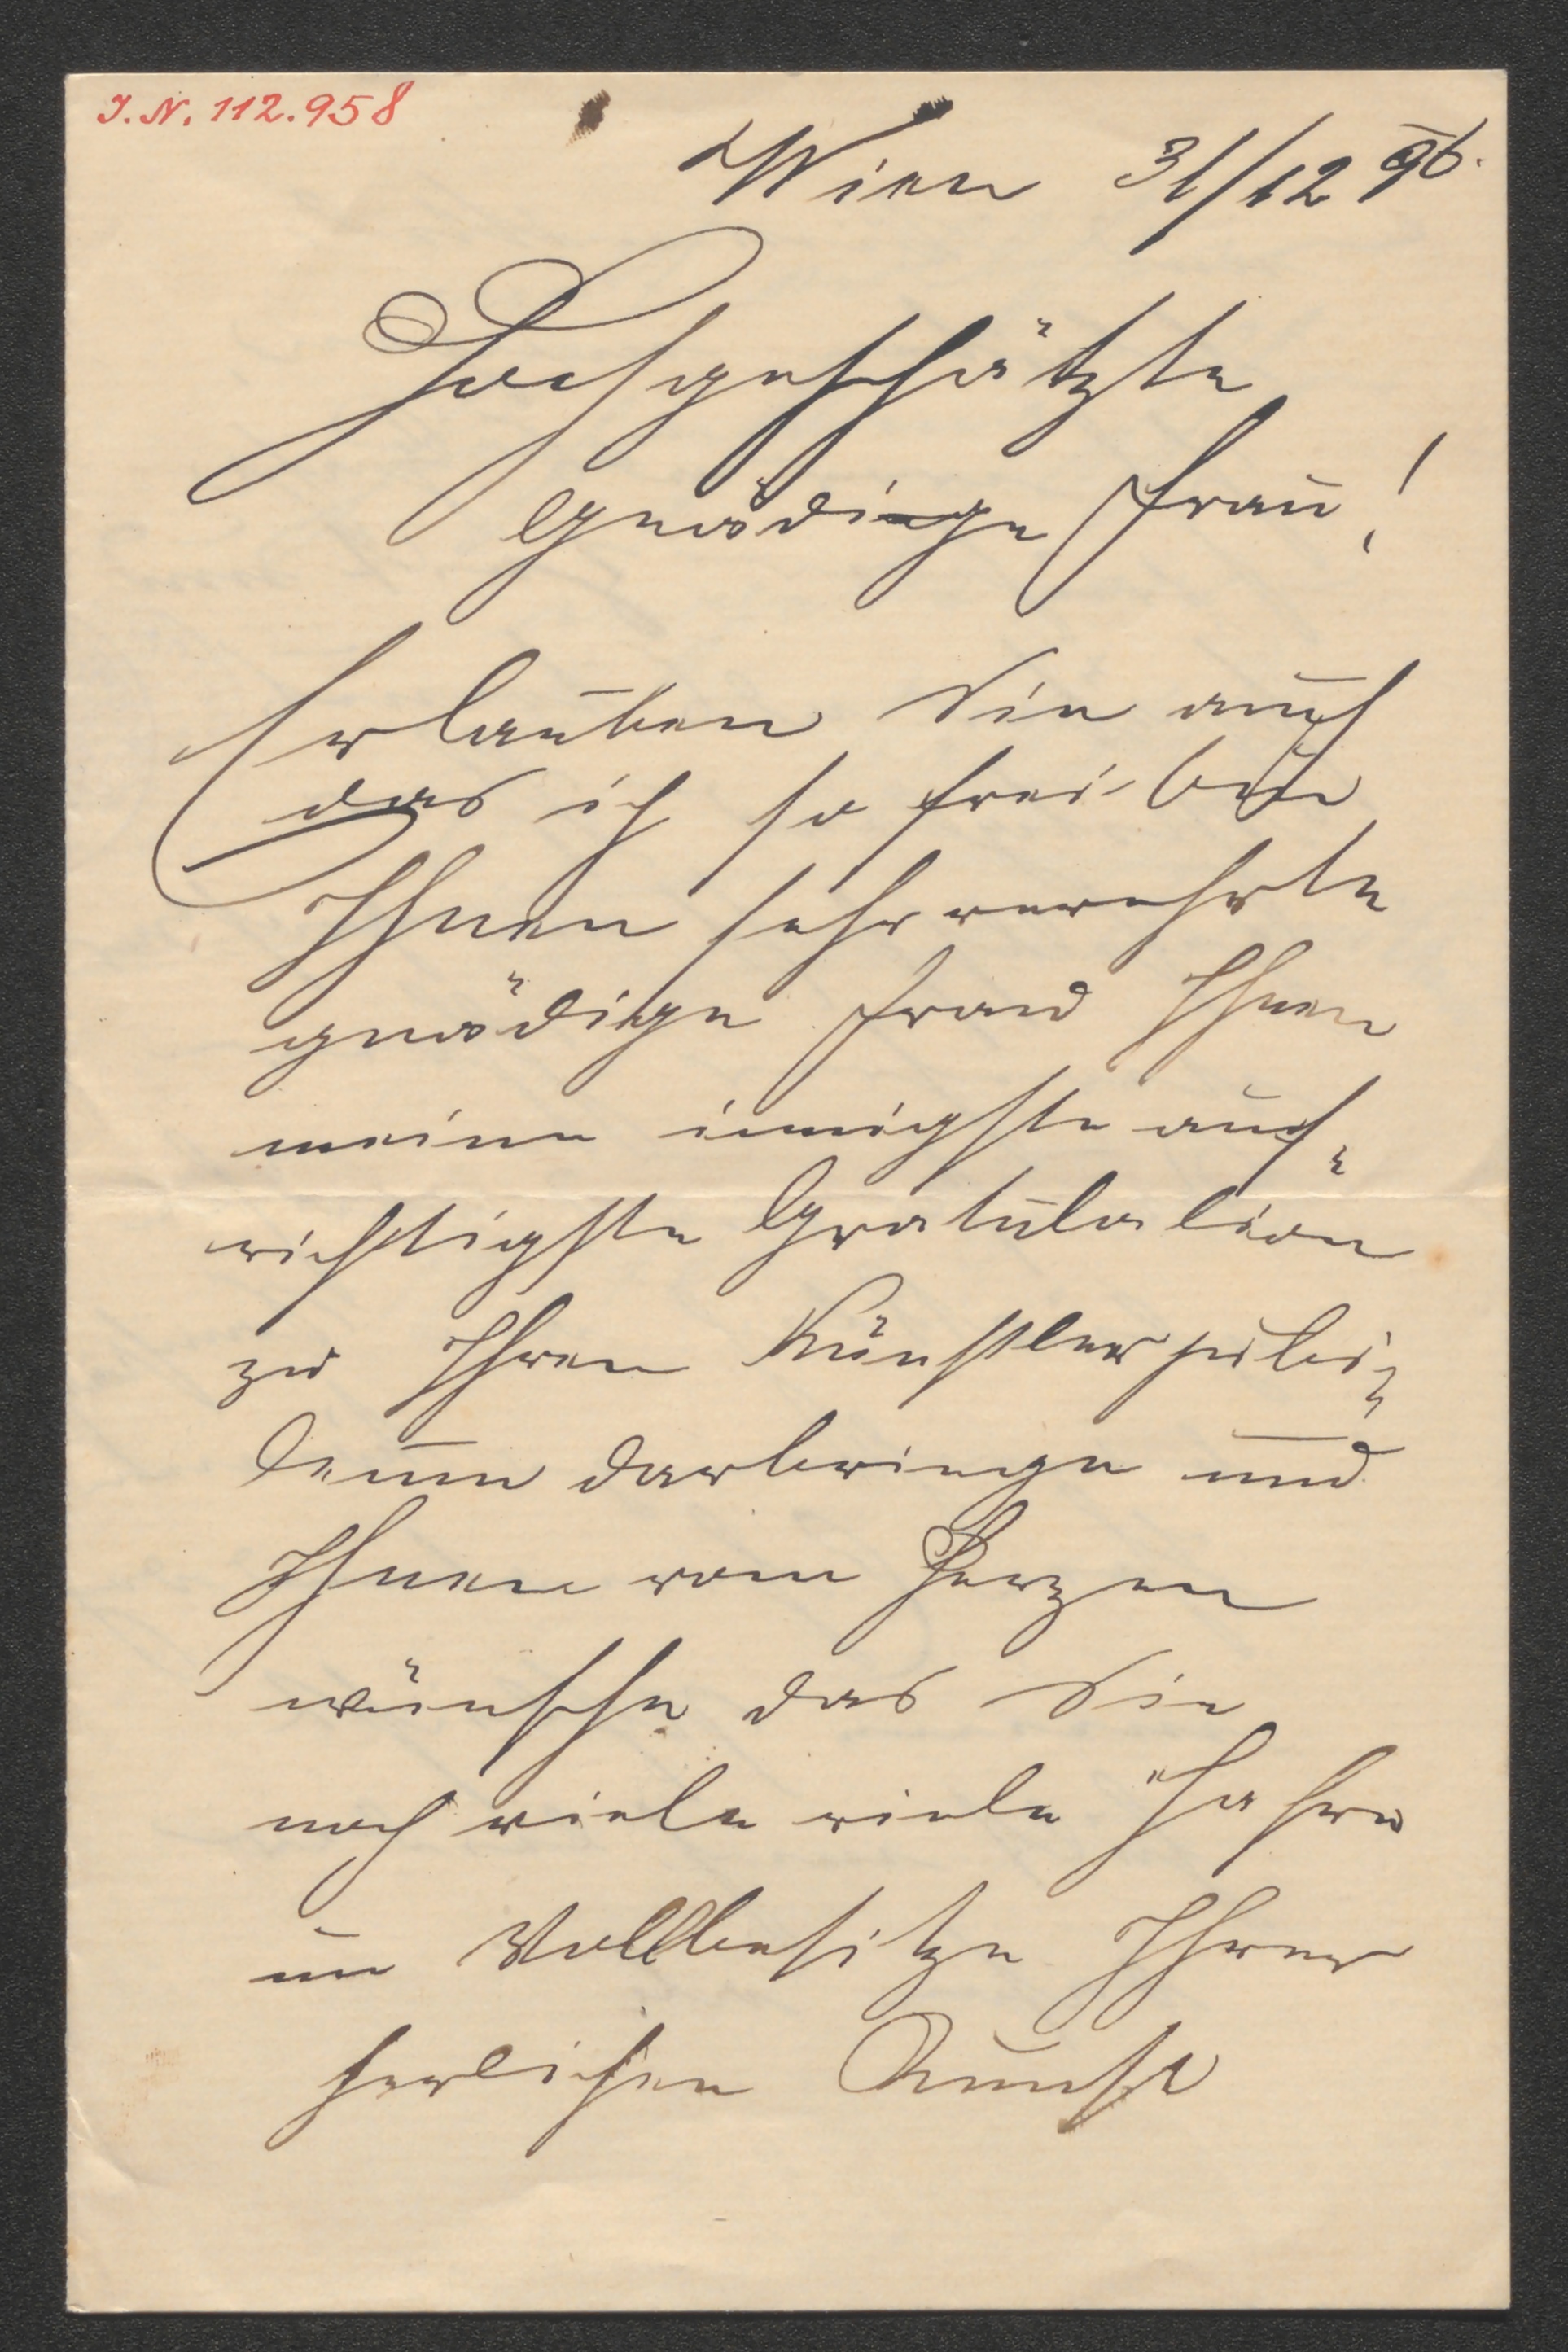 I. N. 112.958
Wien 31/12 96.
Hochgeschätzte
Gnädige Frau!
Erlauben Sie auch
das ich so frei bin
Ihnen sehr verehrte
gnädige Frau Ihnen
meine innigste auf-
richtigste Gratulation
zu Ihren Künstlerjubi-
leum darbringe und
Ihnen vom Herzen
wünsche das Sie
noch viele viele Jahre
im Vollbesitze Ihrer
herlichen Kunst